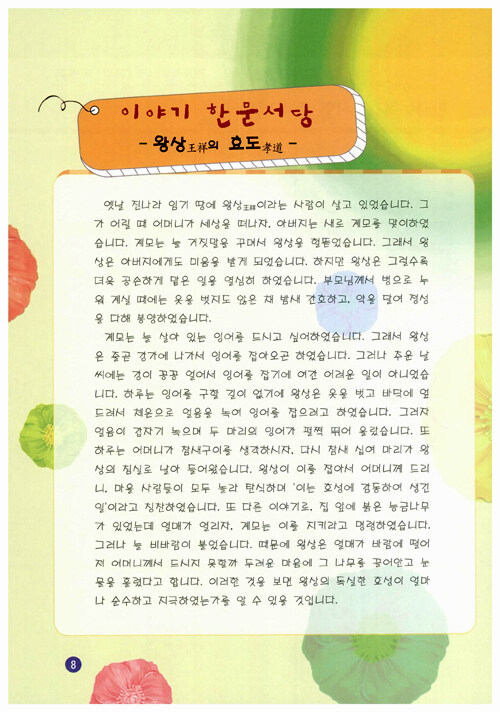 이야기 한문서당
- 왕상王祥의 효도孝道 -
옛날 진나라 임기 땅에 왕상王祥이라는 사람이 살고 있었습니다. 그
가 어릴 때 어머니가 세상을 떠나자, 아버지는 새로 계모를 맞이하였
습니다. 계모는 늘 거짓말을 꾸며서 왕상을 헐뜯었습니다. 그래서 왕
상은 아버지에게도 미움을 받게 되었습니다. 하지만 왕상은 그럴수록
더욱 공손하게 맡은 일을 열심히 하였습니다. 부모님께서 병으로 누
워 계실 때에는 옷을 벗지도 않은 채 밤새 간호하고, 약을 달여 정성
을 다해 봉양하였습니다.
계모는 늘 살아 있는 잉어를 드시고 싶어하였습니다. 그래서 왕상
은 줄곧 강가에 나가서 잉어를 잡아오곤 하였습니다. 그러나 추운 날
씨에는 강이 꽁꽁 얼어서 잉어를 잡기에 여간 어려운 일이 아니었습
니다. 하루는 잉어를 구할 길이 없기에 왕상은 옷을 벗고 바닥에 엎
드려서 체온으로 얼음을 녹여 잉어를 잡으려고 하였습니다. 그러자
얼음이 갑자기 녹으며 두 마리의 잉어가 펄쩍 뛰어 올랐습니다. 또
하루는 어머니가 참새구이를 생각하시자, 다시 참새 십여 마리가 왕
상의 침실로 날아 들어왔습니다. 왕상이 이를 잡아서 어머니께 드리
니, 마을 사람들이 모두 놀라 탄식하며 '이는 효성에 감동하여 생긴
일'이라고 칭찬하였습니다. 또 다른 이야기로, 집 앞에 붉은 능금나무
가 있었는데 열매가 열리자, 계모는 이를 지키라고 명령하였습니다.
그러나 늘 비바람이 불었습니다. 때문에 왕상은 열매가 바람에 떨어
져 어머니께서 드시지 못할까 두려운 마음에 그 나무를 끌어안고 눈
물을 흘렸다고 합니다. 이러한 것을 보면 왕상의 독실한 효성이 얼마
나 순수하고 지극하였는가를 알 수 있을 것입니다.
8